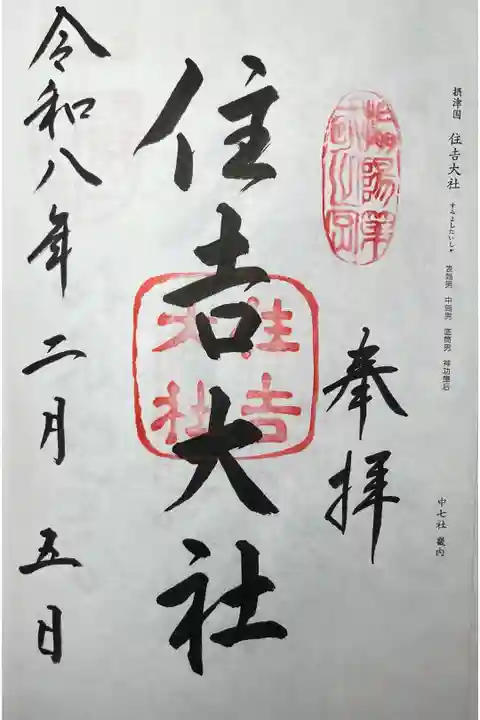 摂津国 住吉大社 すみよしたいしゃ 表筒男 中筒男 底筒男 神功皇后
中七社 畿内
奉拝
住吉大社
住吉
大社
令和八年 二月 五日